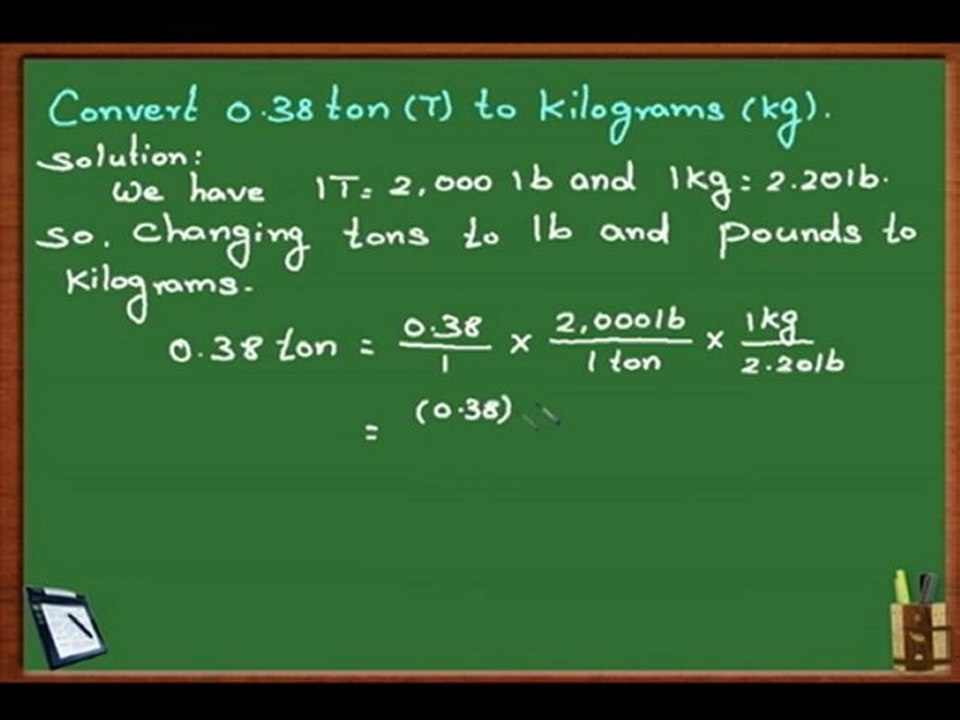 Convert 0.38 ton (T) to Kilograms (kg).
Solution:
We have 1T = 2,000 lb and 1kg = 2.20lb.
So. Changing tons to lb and pounds to
Kilograms.
0.38 ton = 0.38/1 × 2,000lb/1 ton × 1kg/2.20lb
= (0.38)